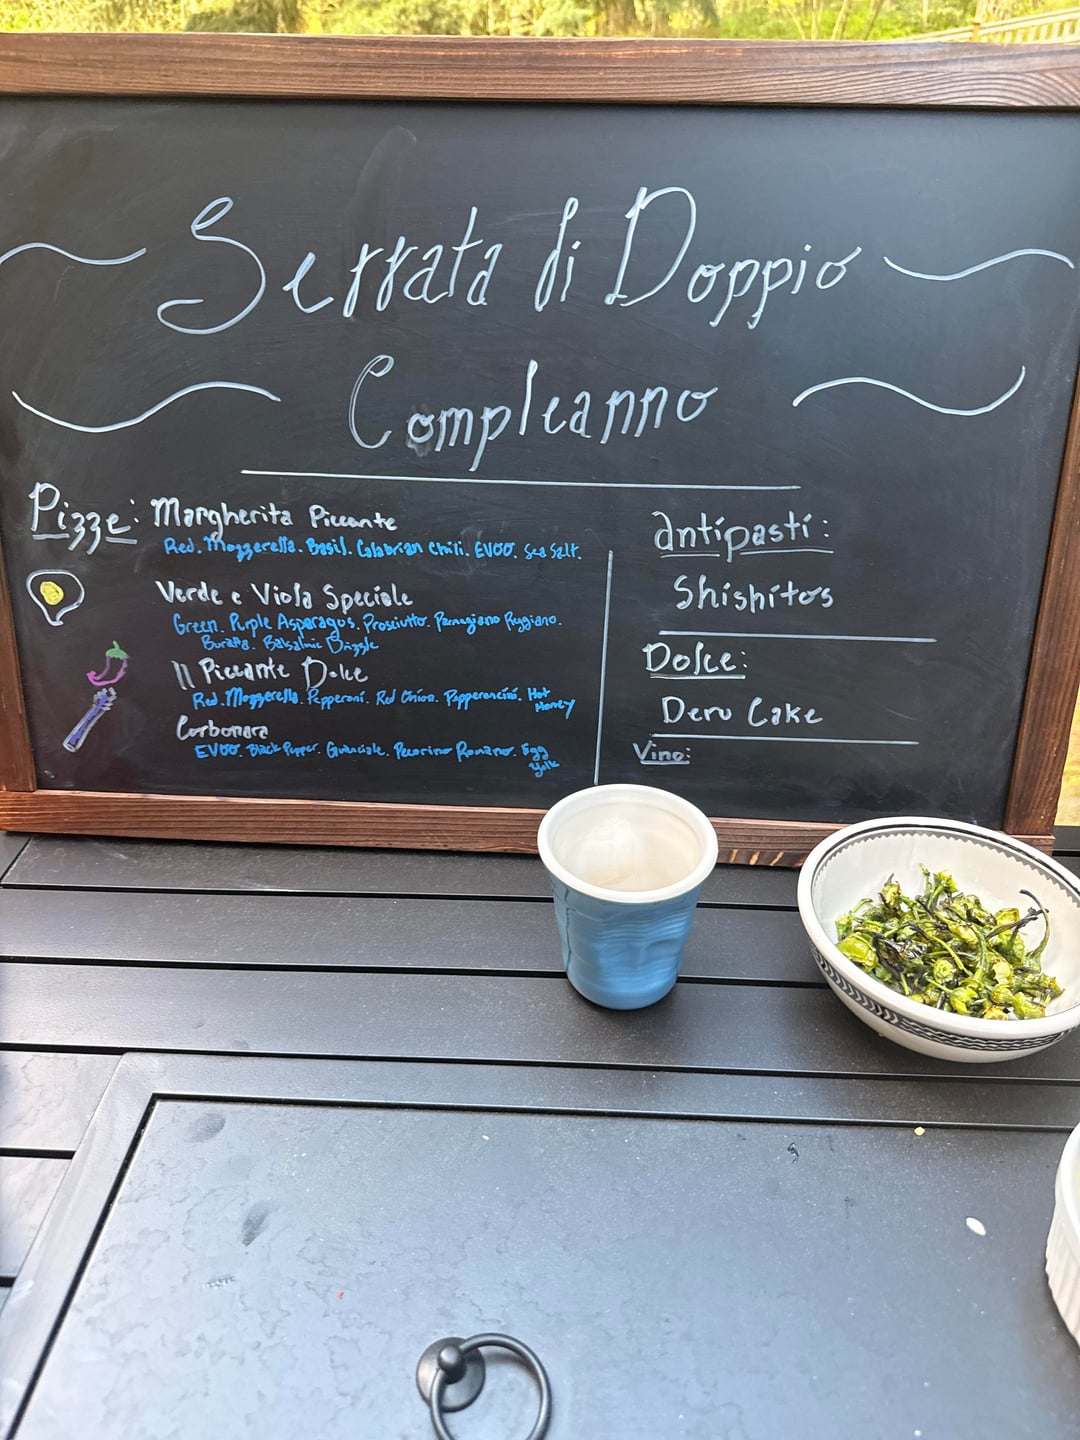 Serrata di Doppio
Compleanno
Pizze: Margherita Piccante
Red. Mozzerella. Basil. Calabrian Chili. EVOO. Sea Salt.
Verde e Viola Speciale
Green. Purple Asparagus. Prosciutto. Parmagiano Reggiano.
Buratta. Balsalmic Drizzle
Il Piccante Dolce
Red. Mozzerella. Pepperoni. Red Onion. Pepperoncini. Hot
Honey
Carbonara
EVOO. Black Pepper. Guanciale. Pecorino Romano. Egg
Yolk
antipasti:
Shishitos
Dolce:
Deru Cake
Vino: